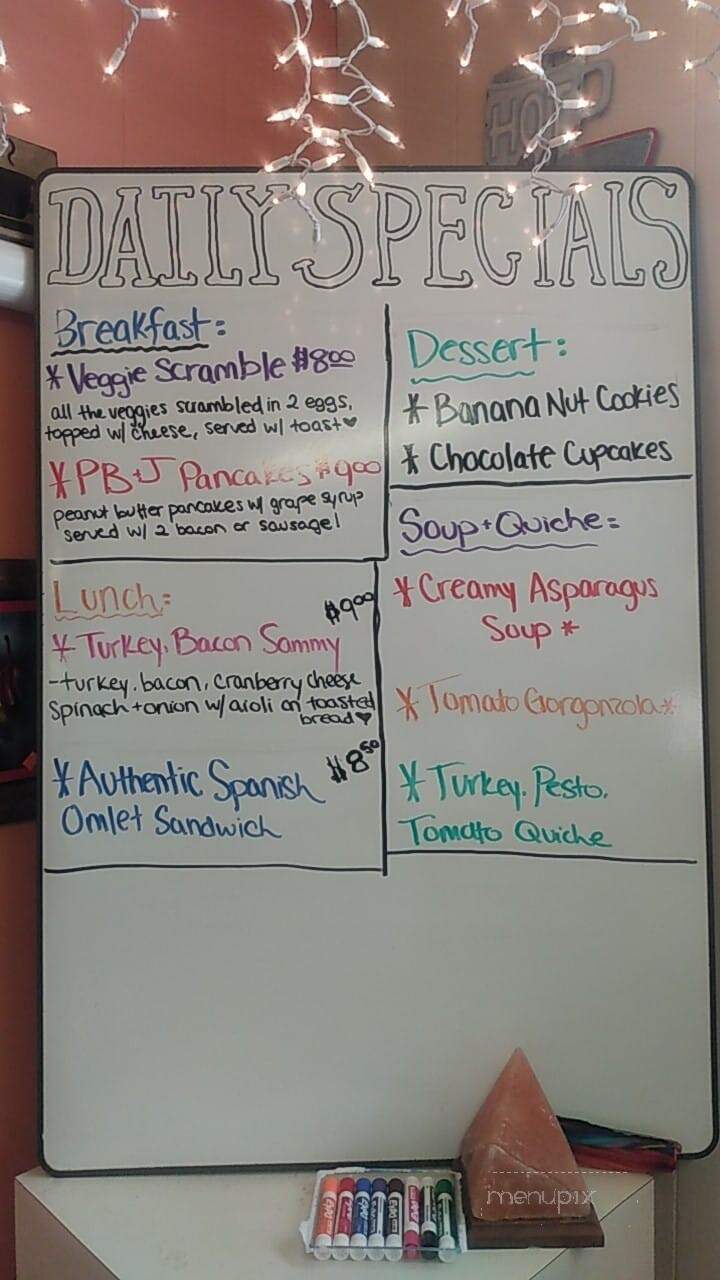 HOT
DAILY SPECIALS
Breakfast:
* Veggie Scramble $8.00
all the veggies scrambled in 2 eggs,
topped w/ cheese, served w/ toast ♥
* PB+J Pancakes $9.00
peanut butter pancakes w/ grape syrup
served w/ 2 bacon or sausage!
Lunch:
$9.00
* Turkey, Bacon Sammy
- turkey, bacon, cranberry cheese
Spinach + onion w/ aioli on toasted
bread ♥
$8.50
* Authentic Spanish
Omlet Sandwich
Dessert:
* Banana Nut Cookies
* Chocolate Cupcakes
Soup + Quiche:
* Creamy Asparagus
Soup *
* Tomato Gorgonzola *
* Turkey, Pesto,
Tomato Quiche
EXPO
menupix